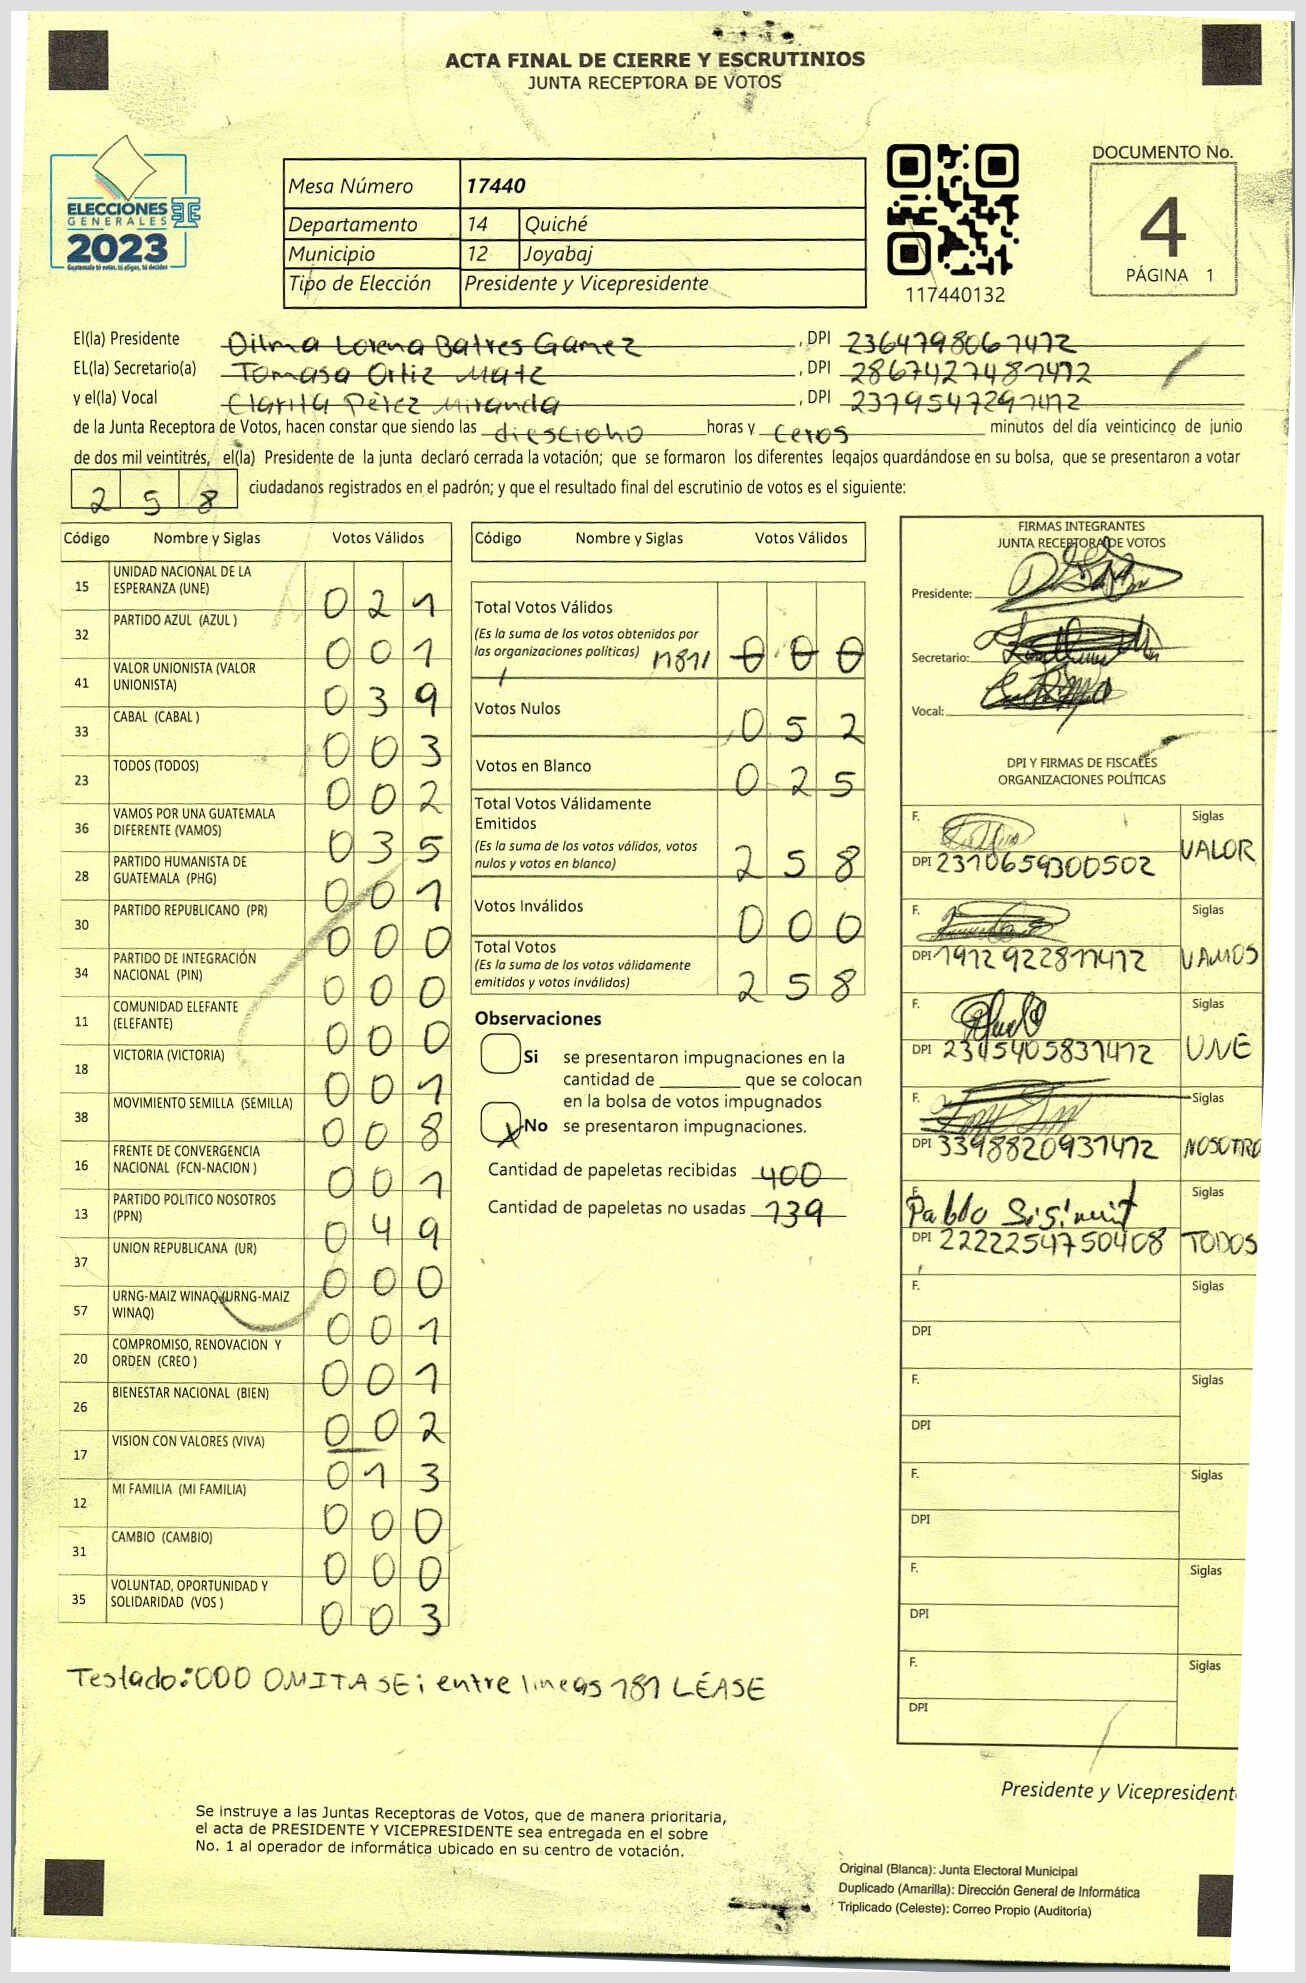 ACTA FINAL DE CIERRE Y ESCRUTINIOS
JUNTA RECEPTORA DE VOTOS
ELECCIONES
GENERALES
2023
Guatemala tú votas, tú eliges, tú decides
Mesa Número 17440
Departamento 14 Quiché
Municipio 12 Joyabaj
Tipo de Elección Presidente y Vicepresidente
117440132
DOCUMENTO No.
4
PÁGINA 1
El(la) Presidente Dilma Lorena Batres Gamez, DPI 2364798067472
EL(la) Secretario(a) Tomasa Ortiz Matz, DPI 2867427487472
y el(la) Vocal Clarita Pérez Miranda, DPI 2379547297472
de la Junta Receptora de Votos, hacen constar que siendo las diescioho horas y ceros minutos del día veinticinco de junio
de dos mil veintitrés, el(la) Presidente de la junta declaró cerrada la votación; que se formaron los diferentes legajos guardándose en su bolsa, que se presentaron a votar
258 ciudadanos registrados en el padrón; y que el resultado final del escrutinio de votos es el siguiente:
Código Nombre y Siglas Votos Válidos
15 UNIDAD NACIONAL DE LA ESPERANZA (UNE) 021
32 PARTIDO AZUL (AZUL ) 001
41 VALOR UNIONISTA (VALOR UNIONISTA) 039
33 CABAL (CABAL ) 003
23 TODOS (TODOS) 002
36 VAMOS POR UNA GUATEMALA DIFERENTE (VAMOS) 035
28 PARTIDO HUMANISTA DE GUATEMALA (PHG) 001
30 PARTIDO REPUBLICANO (PR) 000
34 PARTIDO DE INTEGRACIÓN NACIONAL (PIN) 000
11 COMUNIDAD ELEFANTE (ELEFANTE) 000
18 VICTORIA (VICTORIA) 001
38 MOVIMIENTO SEMILLA (SEMILLA) 008
16 FRENTE DE CONVERGENCIA NACIONAL (FCN-NACION ) 001
13 PARTIDO POLITICO NOSOTROS (PPN) 049
37 UNION REPUBLICANA (UR) 000
57 URNG-MAIZ WINAQ (URNG-MAIZ WINAQ) 001
20 COMPROMISO, RENOVACION Y ORDEN (CREO ) 001
26 BIENESTAR NACIONAL (BIEN) 002
17 VISION CON VALORES (VIVA) 013
12 MI FAMILIA (MI FAMILIA) 000
31 CAMBIO (CAMBIO) 000
35 VOLUNTAD, OPORTUNIDAD Y SOLIDARIDAD (VOS ) 003
Código Nombre y Siglas Votos Válidos
Total Votos Válidos
(Es la suma de los votos obtenidos por
las organizaciones políticas) 000
Votos Nulos 052
Votos en Blanco 025
Total Votos Válidamente
Emitidos
(Es la suma de los votos válidos, votos
nulos y votos en blanco) 258
Votos Inválidos 000
Total Votos
(Es la suma de los votos válidamente
emitidos y votos inválidos) 258
Observaciones
Si se presentaron impugnaciones en la
cantidad de ________ que se colocan
en la bolsa de votos impugnados
X No se presentaron impugnaciones.
Cantidad de papeletas recibidas 400
Cantidad de papeletas no usadas 139
FIRMAS INTEGRANTES
JUNTA RECEPTORA DE VOTOS
Presidente:
Secretario:
Vocal:
DPI Y FIRMAS DE FISCALES
ORGANIZACIONES POLÍTICAS
F. Siglas
DPI 2310659300502 VALOR
F. Siglas
DPI 1912922811412 VAMOS
F. Siglas
DPI 2345405831412 UNE
F. Siglas
DPI 3398820931472 NOSOTRO
F. Pablo Sisimit Siglas
DPI 2222254750408 TODOS
F. Siglas
DPI
F. Siglas
DPI
F. Siglas
DPI
F. Siglas
DPI
F. Siglas
DPI
Testado: 000 OMITASE; entre lineas 181 LÉASE
Presidente y Vicepresident
Se instruye a las Juntas Receptoras de Votos, que de manera prioritaria,
el acta de PRESIDENTE Y VICEPRESIDENTE sea entregada en el sobre
No. 1 al operador de informática ubicado en su centro de votación.
Original (Blanca): Junta Electoral Municipal
Duplicado (Amarilla): Dirección General de Informática
Triplicado (Celeste): Correo Propio (Auditoría)